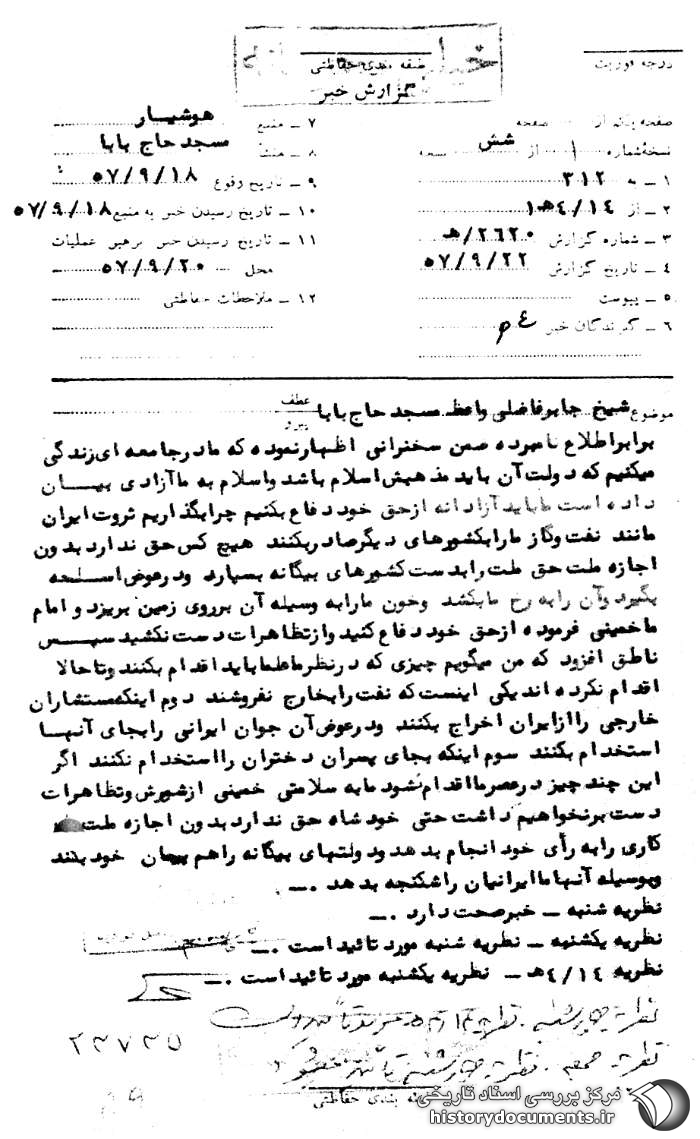 طبقه بندی حفاظتی
گزارش خبر
درجه فوریت
صفحه یک از صفحه
نسخه شماره ۱ از شش نسخه
۱ ـ به ۳۱۲
۲ ـ از ۱۴/۴ه۱
۳ ـ شماره گزارش ۲۶۲۰/ه
۴ ـ تاریخ گزارش ۵۷/۹/۲۲
۵ ـ پیوست
۶ ـ گیرندگان خبر
۷ ـ منبع هوشیار
۸ ـ منشأ مسجد حاج بابا
۹ ـ تاریخ وقوع ۵۷/۹/۱۸
۱۰ ـ تاریخ رسیدن خبر به منبع ۵۷/۹/۱۸
۱۱ ـ تاریخ رسیدن خبر برهبر عملیات
محل ۵۷/۹/۲۰
۱۲ ـ ملاحظات حفاظتی
موضوع شیخ جابر فاضلی واعظ مسجد حاج بابا
عطف
پیرو
برابر اطلاع نامبرده ضمن سخنرانی اظهار نموده که ما در جامعه ای زندگی
میکنیم که دولت آن باید مذهبش اسلام باشد و اسلام به ما آزادی بیان
داده است ما باید آزادانه از حق خود دفاع بکنیم چرا بگذاریم ثروت ایران
مانند نفت و گاز ما را بکشورهای دیگر صادر بکنند هیچ کس حق ندارد بدون
اجازه ملت حق ملت را بدست کشورهای بیگانه بسپارد و در عوض اسلحه
بگیرد و آن را به رخ ما بکشد و خون ما را به وسیله آن بر روی زمین بریزد و امام
ما خمینی فرموده از حق خود دفاع کنید و از تظاهرات دست نکشید سپس
ناطق افزود که من میگویم چیزی که در نظر ما علما باید اقدام بکنند و تا حالا
اقدام نکرده اند یکی اینست که نفت را بخارج نفروشند دوم اینکه مستشاران
خارجی را از ایران اخراج بکنند و در عوض آن جوان ایرانی را بجای آنها
استخدام بکنند سوم اینکه بجای پسران دختران را استخدام نکنند اگر
این چند چیز در عصر ما اقدام نشود ما به سلامتی خمینی از شورش و تظاهرات
دست بر نخواهیم داشت حتی خود شاه حق ندارد بدون اجازه ملت
کاری را به رأی خود انجام بدهد و دولتهای بیگانه را هم پیمان خود بنند
و بوسیله آنها ما ایرانیان را شکنجه بدهد .ـ
نظریه شنبه ـ خبر صحت دارد .ـ
نظریه یکشنبه ـ نظریه شنبه مورد تائید است .ـ
نظریه ۱۴/۴ه ـ نظریه یکشنبه مورد تائید است .ـ
نظریه چهارشنبه . نظریه
نظریه جمعه . نظریه چهارشنبه تائید میشود
۲۳۷۳۵
طبقه بندی حفاظتی
مرکز بررسی اسناد تاریخی
historydocuments.ir